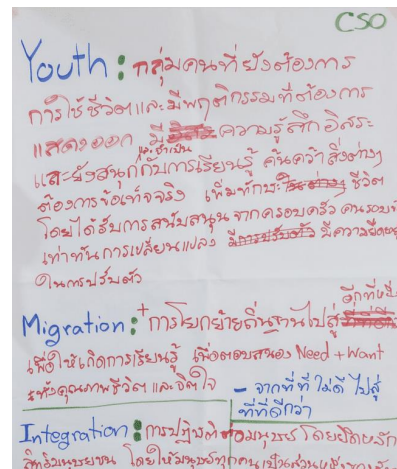 CSO
Youth : กลุ่มคนที่ยังต้องการ
การใช้ชีวิตและมีพฤติกรรมที่ต้องการ
แสดงออก มี ความรู้สึกอิสระ
และจำเป็น
และยังสนุกกับการเรียนรู้ ค้นคว้าสิ่งต่างๆ
ต้องการข้อเท็จจริง เพิ่มทักษะ ชีวิต
โดยได้รับการสนับสนุน จากครอบครัว คนรอบข้าง
เท่าทันการเปลี่ยนแปลง มีความยืดหยุ่น
ในการปรับตัว
อีกที่หนึ่ง
Migration : + การโยกย้ายถิ่นฐานไปสู่
เพื่อให้เกิดการเรียนรู้ เพื่อตอบสนอง Need + Want
ทั้งคุณภาพชีวิต และจิตใจ
– จากที่ที่ไม่ดี ไปสู่
ที่ที่ดีกว่า
Integration : การปฏิบัติต่อมนุษย์ โดยยึดหลัก
สิทธิมนุษยชน โดยให้มนุษย์ทุกคนเป็นส่วน